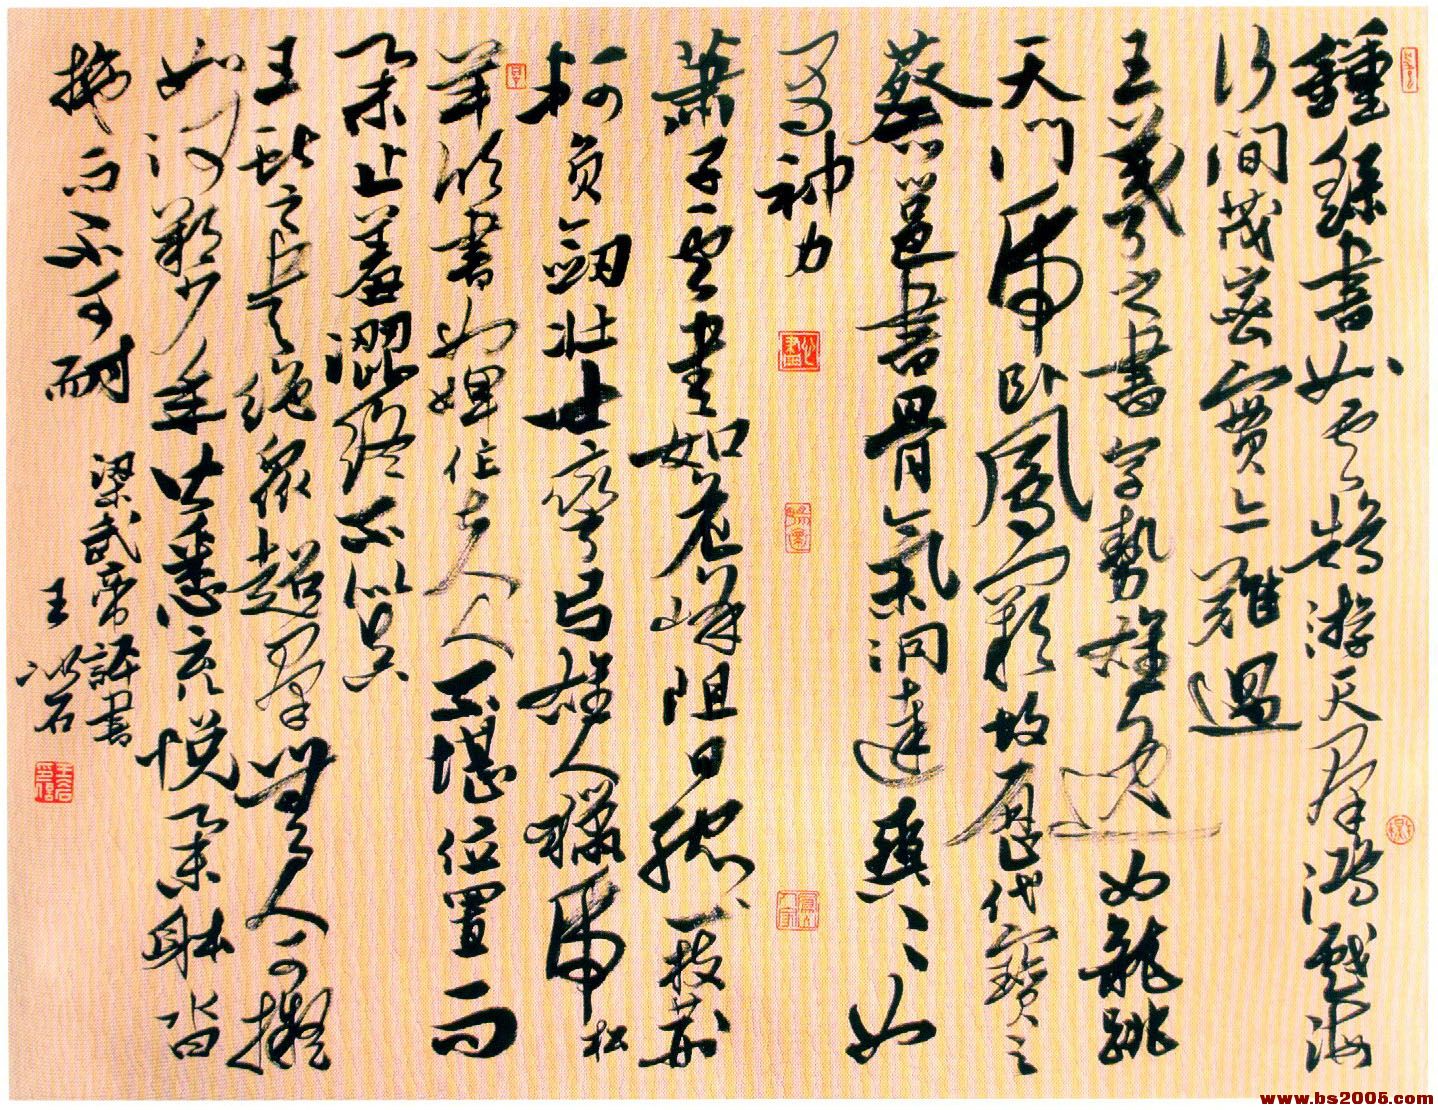 鍾繇書如雲鵠游天群鴻戲海
行間茂密實亦難過
王羲之書字勢雄逸如龍跳
天門虎臥鳳闕故歷代寶之
蔡邕書骨氣洞達爽爽如
有神力
蕭子雲書如危峰阻日孤一枝荊
軻負劍壯士彎弓雄人獵虎松
羊欣書如婢作夫人不堪位置而
舉止羞澀終不似真
王獻之書絕眾超群無人可擬
如河朔少年皆悉充悅舉體沓
拖而不可耐
梁武帝評書
王
www.bs2005.com